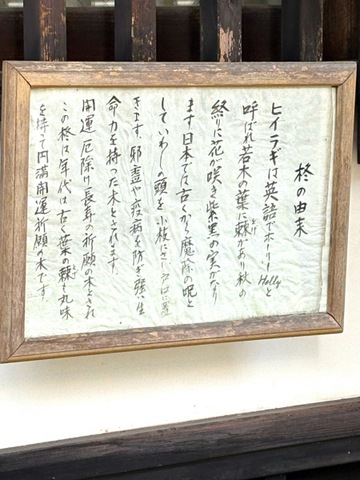 柊の由来
ヒイラギは英語でホーリー Hollyと
呼ばれ若木の葉に棘があり秋の
とげ
終りに花が咲き紫黒の実がなり
ます 日本では古くから魔除の呪と
していわしの頭を小枝にさし戸口に置
きます。邪霊や疫病を防ぎ強い生
命力を持った木とされます。
開運厄除け長寿の祈願の木とされ
この柊は年代は古く葉の棘も丸味
を持って円満開運祈願の木です。